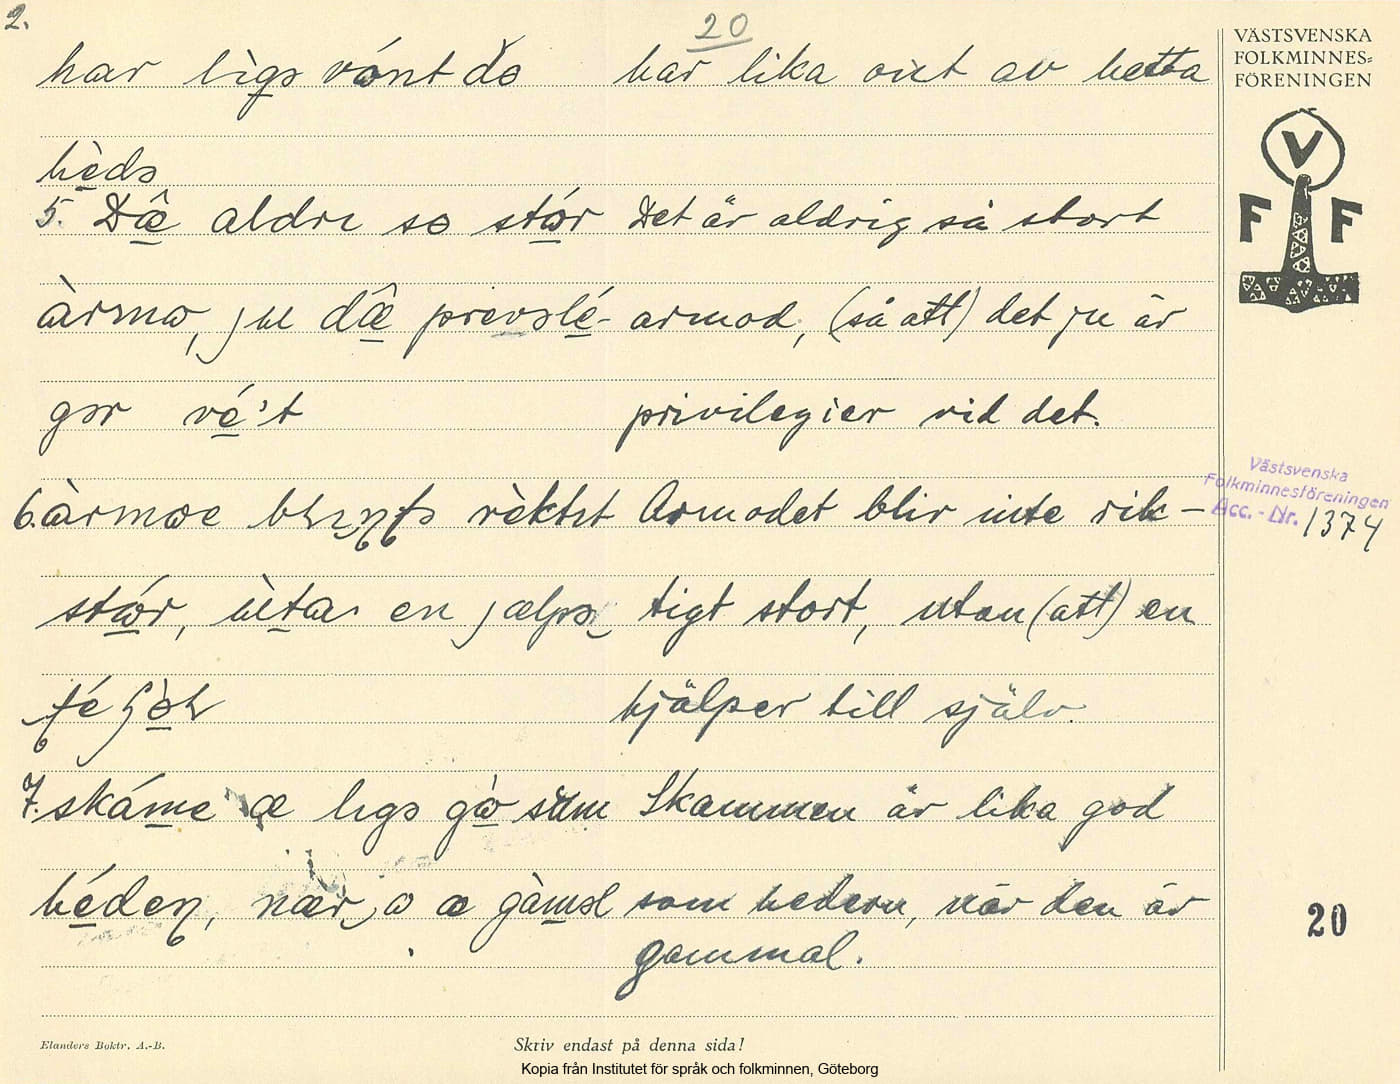 2.
20
har lìgə vónt ɔ̆ə har lika ont av hetta
hèdə
5. Dæ̂ aldrı sə stór Det är aldrig så stort
àrmo, ju dæ̂ prevəlé- armod, (så att) det ju är
gər vé't privilegier vid det.
6. àrmoe rèktıt Armodet blir inte rik-
stór, ùta en jælpə tigt stort, utan (att) en
hjälper till själv.
7. skáme æ lıgə gó sum Skammen är lika god
héden, nær o æ gàməl som hedern, när den är
gammal.
VÄSTSVENSKA
FOLKMINNES=
FÖRENINGEN
V
F F
Västsvenska
Folkminnesföreningen
Acc.-Nr. 1374
20
Elanders Boktr. A.-B.
Skriv endast på denna sida!
Kopia från Institutet för språk och folkminnen, Göteborg